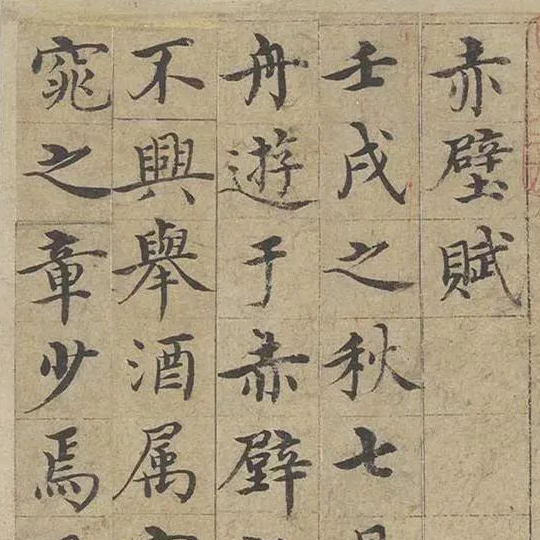 赤壁賦
壬戌之秋七
舟遊于赤壁
不興舉酒属
窕之章少焉